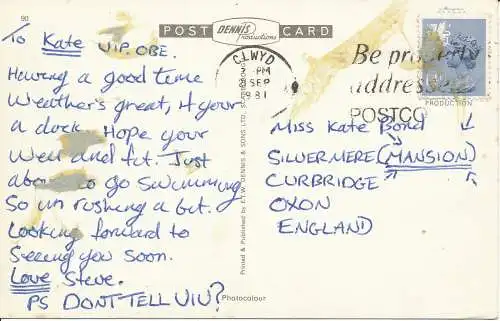 90
POST DENNIS Productions CARD
To Kate V.I.P. OBE.
Having a good time
Weather's great, & your
a dock. Hope your
Well and fit. Just
to go Swimming
So im rushing a bit.
Looking forward to
Seeing you soon.
Love Steve.
PS DON'T TELL VIV?
Printed & Published by E.T.W. DENNIS & SONS LTD., SCARBOROUGH
Photocolour
CLWYD
PM
SEP
1981
Be properly
addressed
POSTCO
PRODUCTION
MISS Kate Bond
SILVERMERE (MANSION)
CURBRIDGE
OXON
ENGLAND